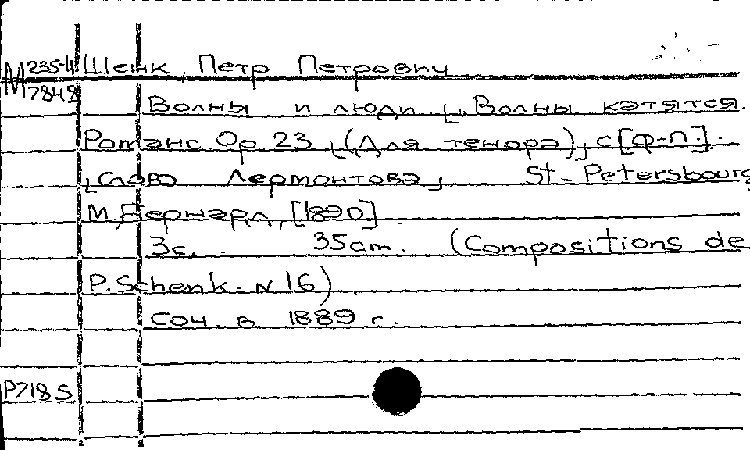 М235-4 Шенк, Петр Петрович
М7848
Волны и люди. [„Волны катятся.
Романс Ор. 23, (Для тенора), с [ф-п].
„слова Лермонтова„ St-Petersbourg
М. Бернард, [1890]
3с. 35am. (Compositions de
P. Schenk. N 16)
Соч. в 1889 г.
Р718S